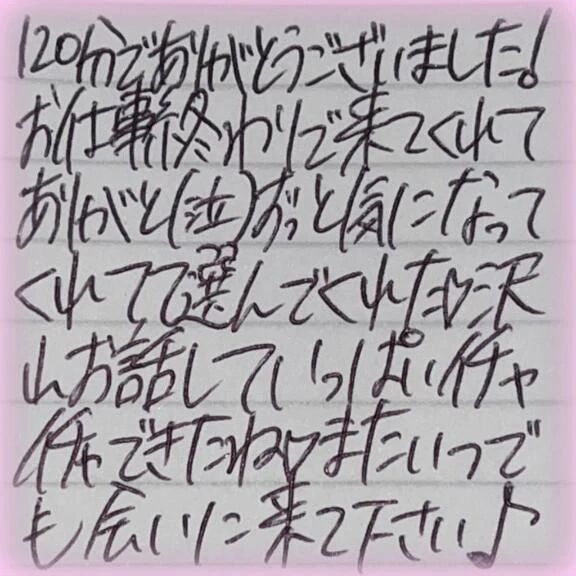 120分でありがとうございました!
お仕事終わりで来てくれて
ありがと(泣)ずっと気になって
くれてて選んでくれた♡沢
山お話していっぱいイチャ
イチャできたね♡またいつで
も会いに来て下さい♪